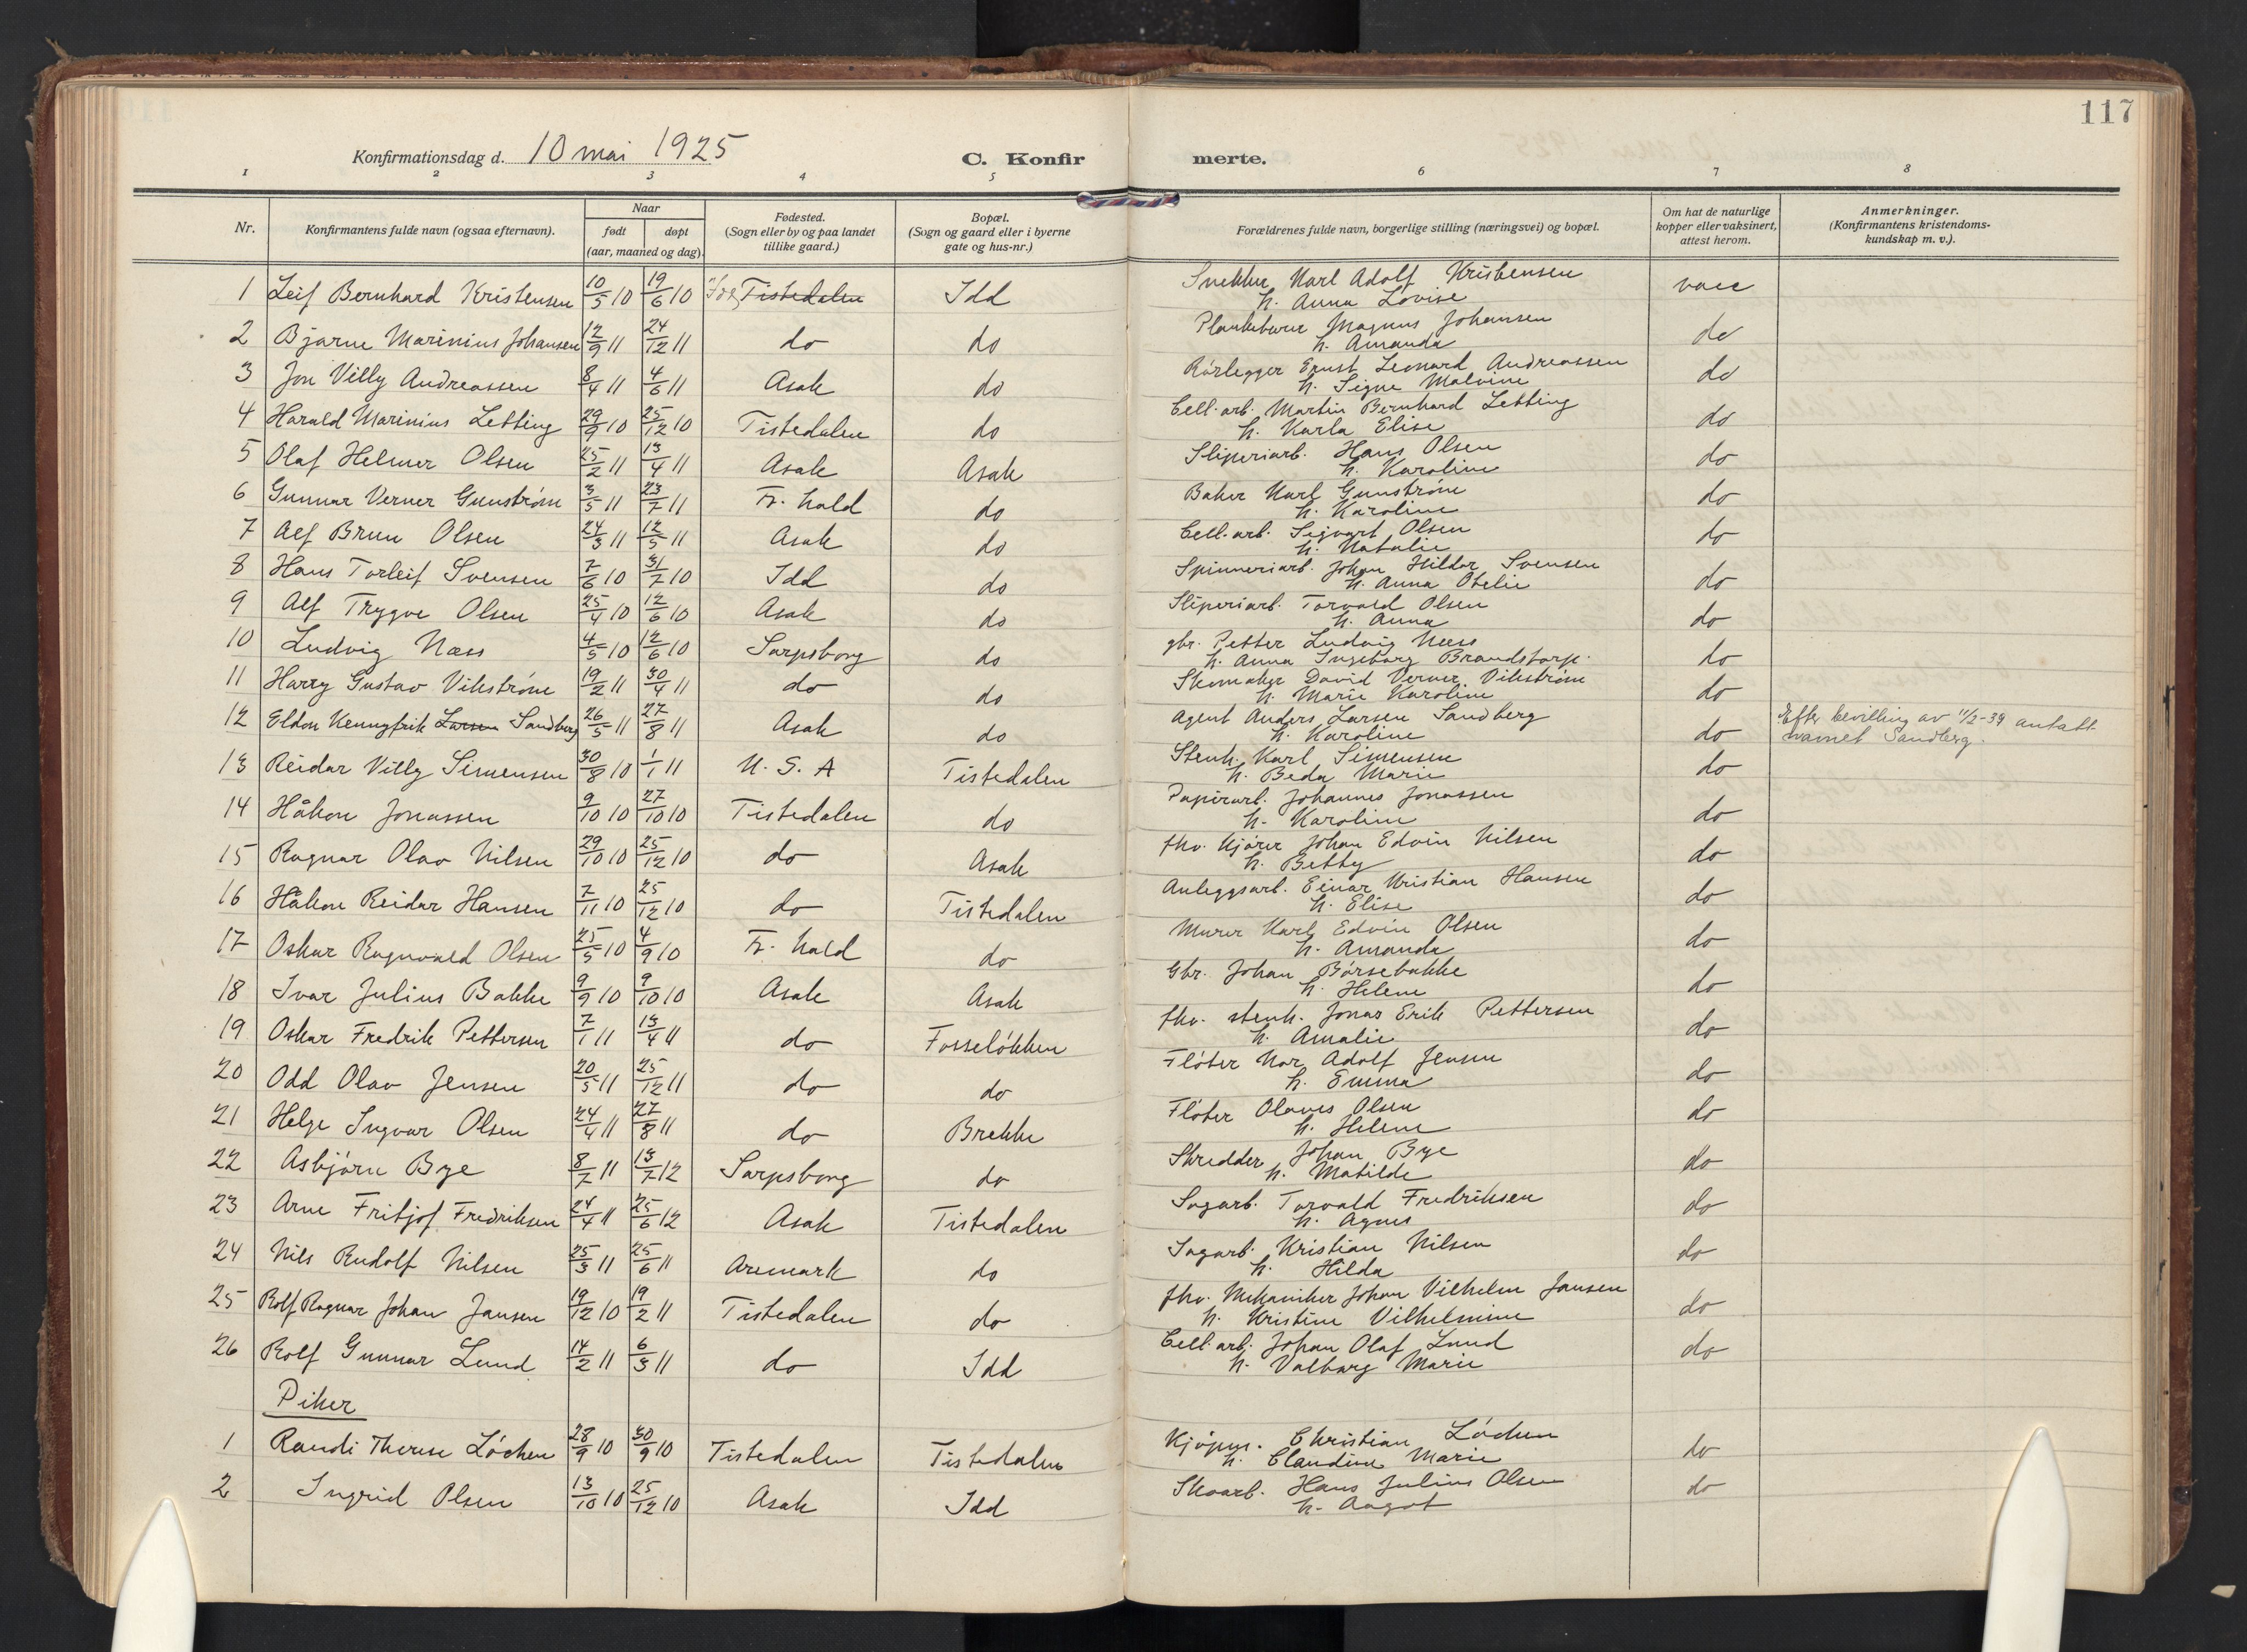 117
Konfirmationsdag d. 10 mai 1925 C. Konfir merte.
1 2 3 4 5 6 7 8
Nr. Konfirmantens fulde navn (ogsaa efternavn). Naar født døpt (aar, maaned og dag). Fødested. (Sogn eller by og paa landet tillike gaard.) Bopæl. (Sogn og gaard eller i byerne gate og hus-nr.) Forældrenes fulde navn, borgerlige stilling (næringsvei) og bopæl. Om hat de naturlige kopper eller vaksinert, attest herom. Anmerkninger. (Konfirmantens kristendoms-kundskap m. v.).
1 Leif Bernhard Kristensen 10/5 10 19/6 10 Idd Tistedalen Idd Snekker Karl Adolf Kristensen vacc
h. Anna Lovise
2 Bjarne Marinius Johansen 12/9 11 24/12 11 do do Plankebærer Magnus Johansen do
h. Amanda
3 Jon Villy Andreassen 8/4 11 4/6 11 Asak do Rörlegger Ernst Leonard Andreassen do
h. Signe Malvine
4 Harald Marinius Letting 29/9 10 25/12 10 Tistedalen do Cell.arb. Martin Bernhard Letting do
h. Karla Elise
5 Olaf Helmer Olsen 25/2 11 13/4 11 Asak Asak Sliperiarb. Hans Olsen do
h. Karoline
6 Gunnar Verner Gunström 3/5 11 23/7 11 Fr. hald do Baker Karl Gunström do
h. Karoline
7 Alf Brun Olsen 24/3 11 12/5 11 Asak do Cell.arb. Sigvart Olsen do
h. Natalie
8 Hans Torleif Svensen 7/6 10 31/7 10 Idd do Spinneriarb. Johan Hildor Svensen do
h. Anna Otelie
9 Alf Trygve Olsen 25/4 10 12/6 10 Asak do Sliperiarb. Torvald Olsen do
h. Anna
10 Ludvig Næss 4/5 10 12/6 10 Sarpsborg do gbr. Petter Ludvig Næss do
h. Anna Ingeborg Brandstorp.
11 Harry Gustav Vikström 19/2 11 30/4 11 do do Skomaker David Verner Vikström do
h. Marie Karoline
12 Eldon Kennyfrik Larsen Sandberg 26/5 11 27/8 11 Asak do Agent Anders Larsen Sandberg do Efter bevilling av 11/2-39 antatt
h. Karoline navnet Sandberg.
13 Reidar Villy Simensen 30/8 10 1/1 11 U. S. A Tistedalen Stenh. Karl Simensen do
h. Beda Marie
14 Håkon Jonassen 9/10 10 27/10 10 Tistedalen do Papirarb. Johannes Jonassen do
h. Karoline
15 Ragnar Olav Nilsen 29/10 10 25/12 10 do Asak fhv. Kjörer Johan Edvin Nilsen do
h. Betty
16 Håkon Reidar Hansen 7/11 10 25/12 10 do Tistedalen Anleggsarb. Einar Kristian Hansen do
h. Elise
17 Oskar Ragnvald Olsen 25/5 10 4/9 10 Fr. hald do Murer Karl Edvin Olsen do
h. Amanda
18 Ivar Julius Bakke 9/9 10 9/10 10 Asak Asak Gbr. Johan Börsebakke do
h. Helene
19 Oskar Fredrik Pettersen 7/1 11 13/4 11 do Fosselökken fhv. stenh. Jonas Erik Pettersen do
h. Amalie
20 Odd Olav Jensen 20/5 11 25/12 11 do do Flöter Adolf Jensen do
h. Emma
21 Helge Ingvar Olsen 24/4 11 27/8 11 do Brekke Flöter Olaves Olsen do
h. Helene
22 Asbjörn Bye 8/7 11 13/7 12 Sarpsborg do Skredder Johan Bye do
h. Matilde
23 Arne Fritjof Fredriksen 24/4 11 25/6 12 Asak Tistedalen Sagarb. Torvald Fredriksen do
h. Agnes
24 Nils Rudolf Nilsen 25/3 11 25/6 11 Aremark do Sagarb. Kristian Nilsen do
h. Hilda
25 Rolf Ragnar Johan Jansen 19/12 10 19/2 11 Tistedalen do fhv. Mekaniker Johan Vilhelm Jansen do
h. Kristine Vilhelmine
26 Rolf Gunnar Lund 14/2 11 6/3 11 do Idd Cell.arb. Johan Olaf Lund do
h. Valborg Marie
Piker
1 Randi Therese Löchen 28/9 10 30/9 10 Tistedalen Tistedalen Kjöpm. Christian Löchen do
h. Claudine Marie
2 Ingrid Olsen 13/10 10 25/12 10 Asak Idd Skoarb. Hans Julius Olsen do
h. Aagot